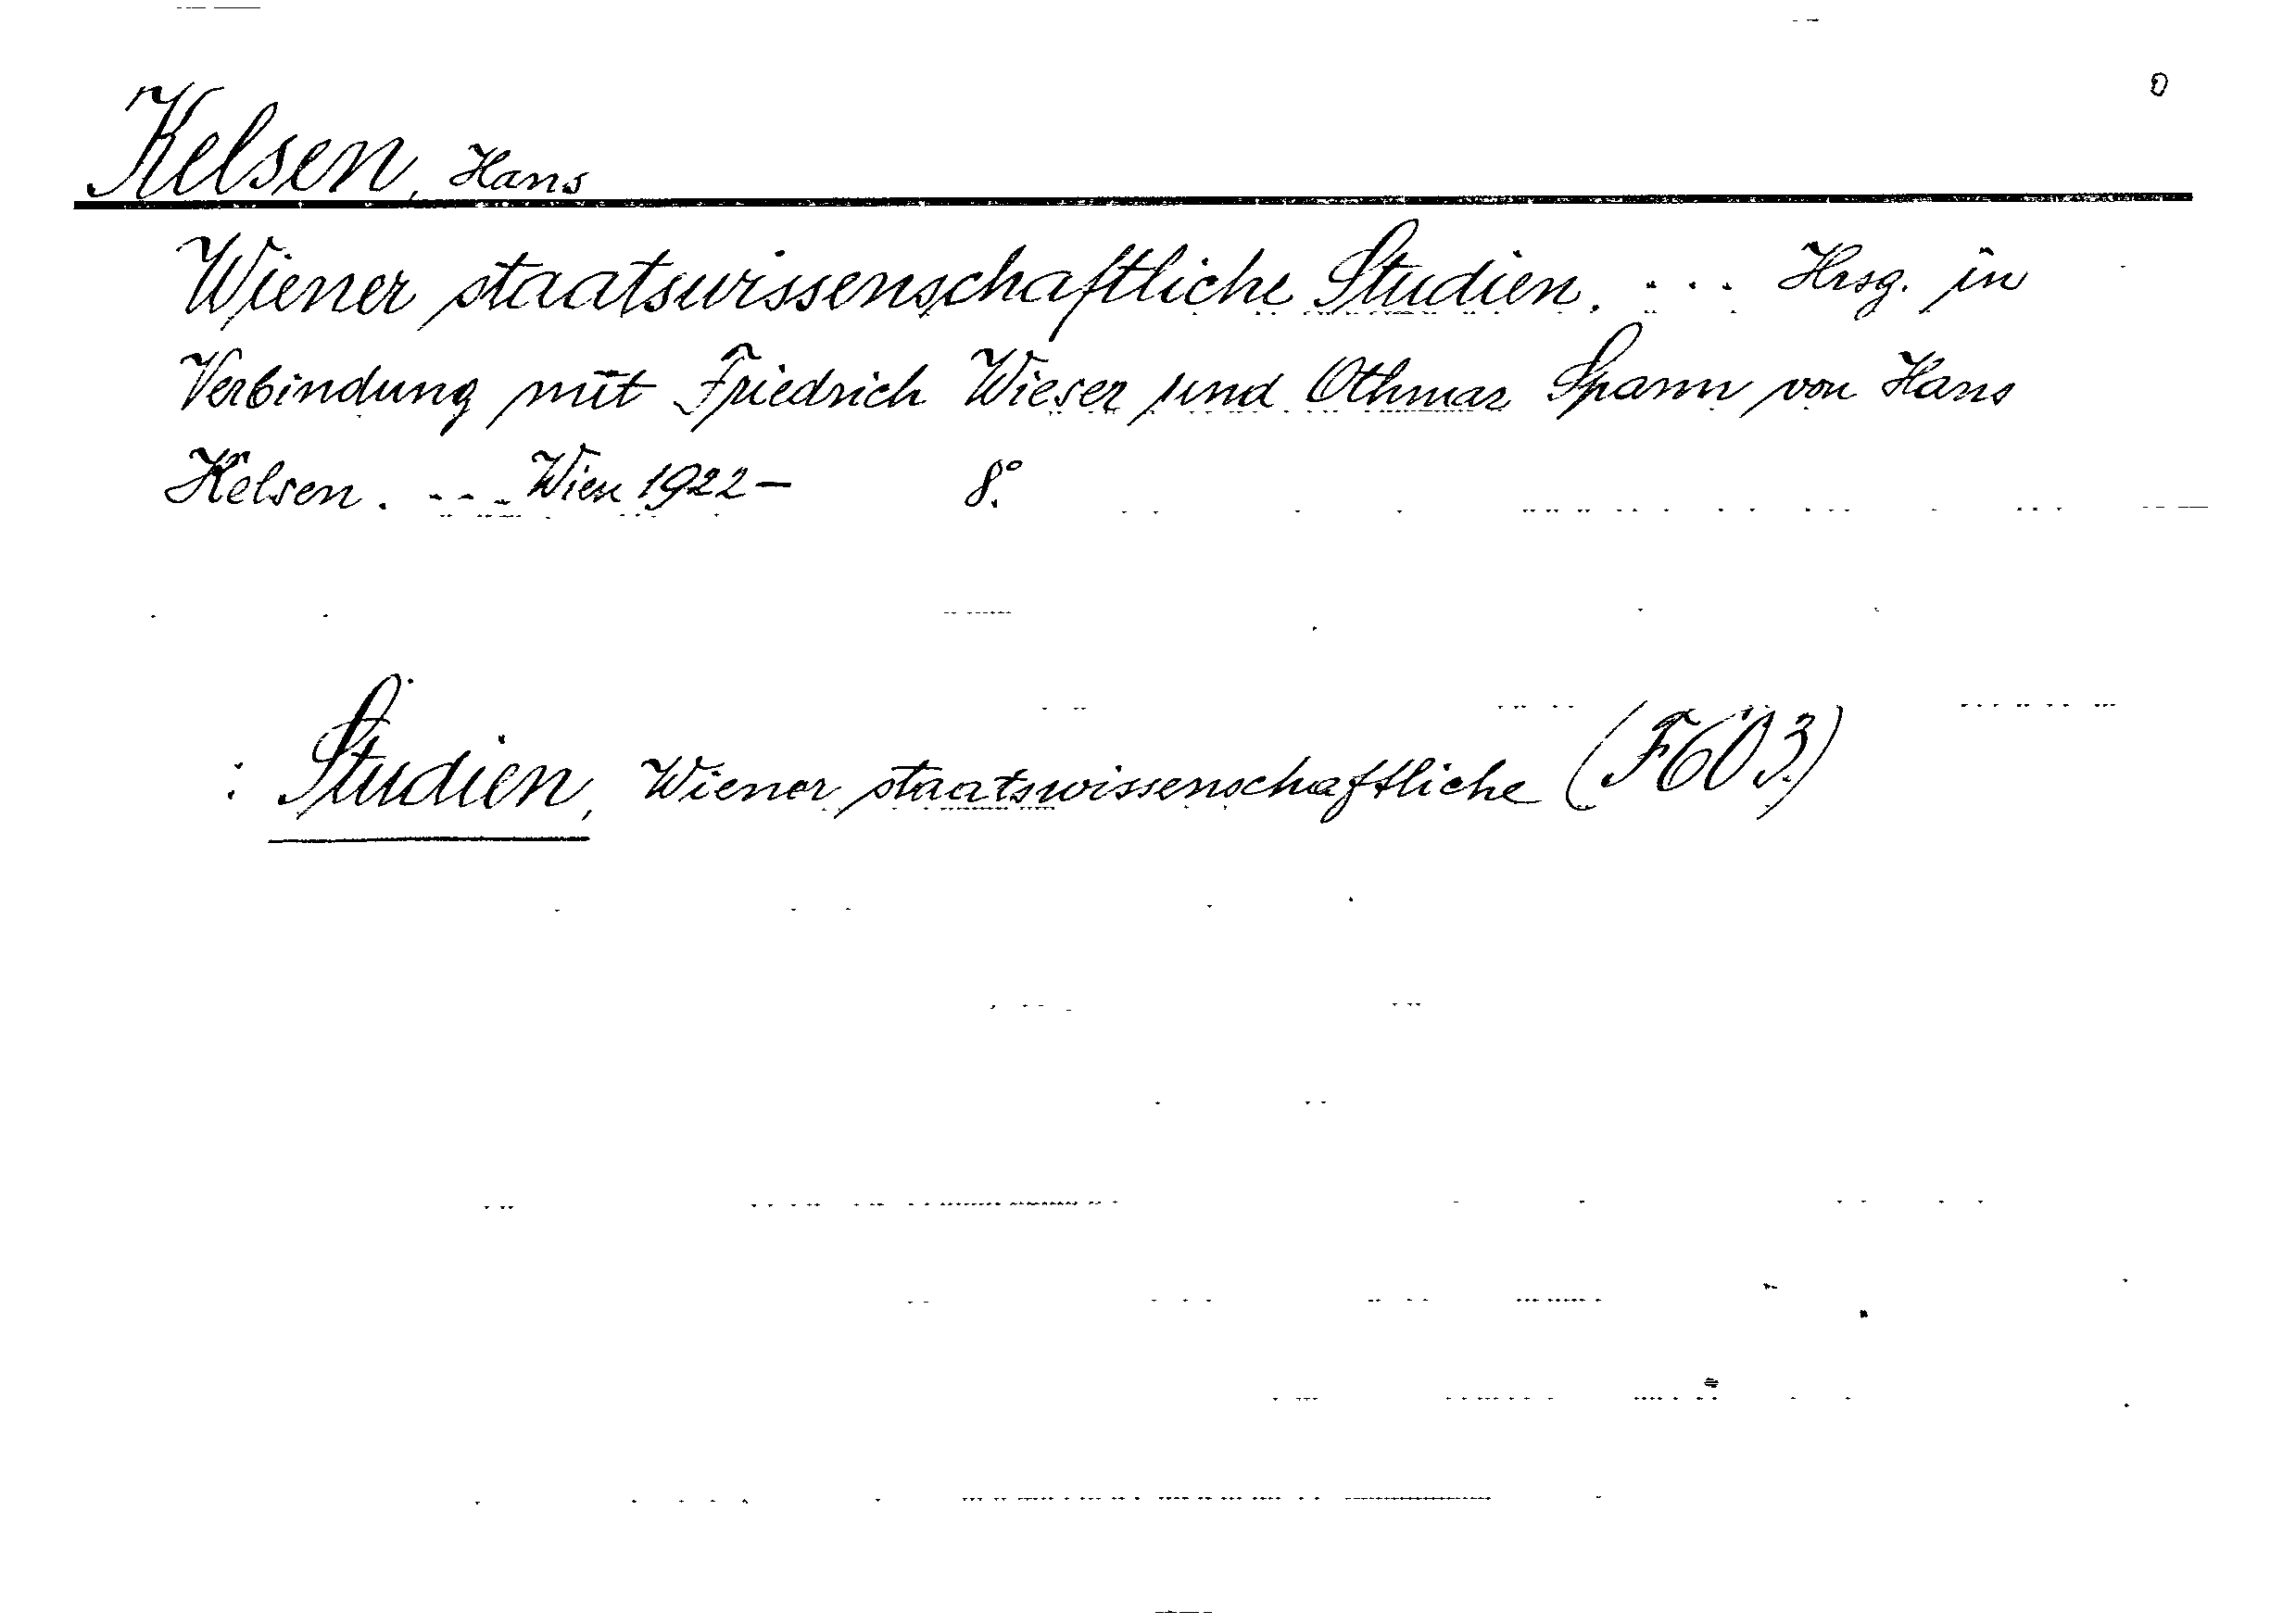 0
Kelsen, Hans
Wiener staatswissenschaftliche Studien. ... Hrsg. in
Verbindung mit Friedrich Wieser und Othmar Spann von Hans
Kelsen. --- Wien 1922– 8°.
: Studien, Wiener staatswissenschaftliche (F603)